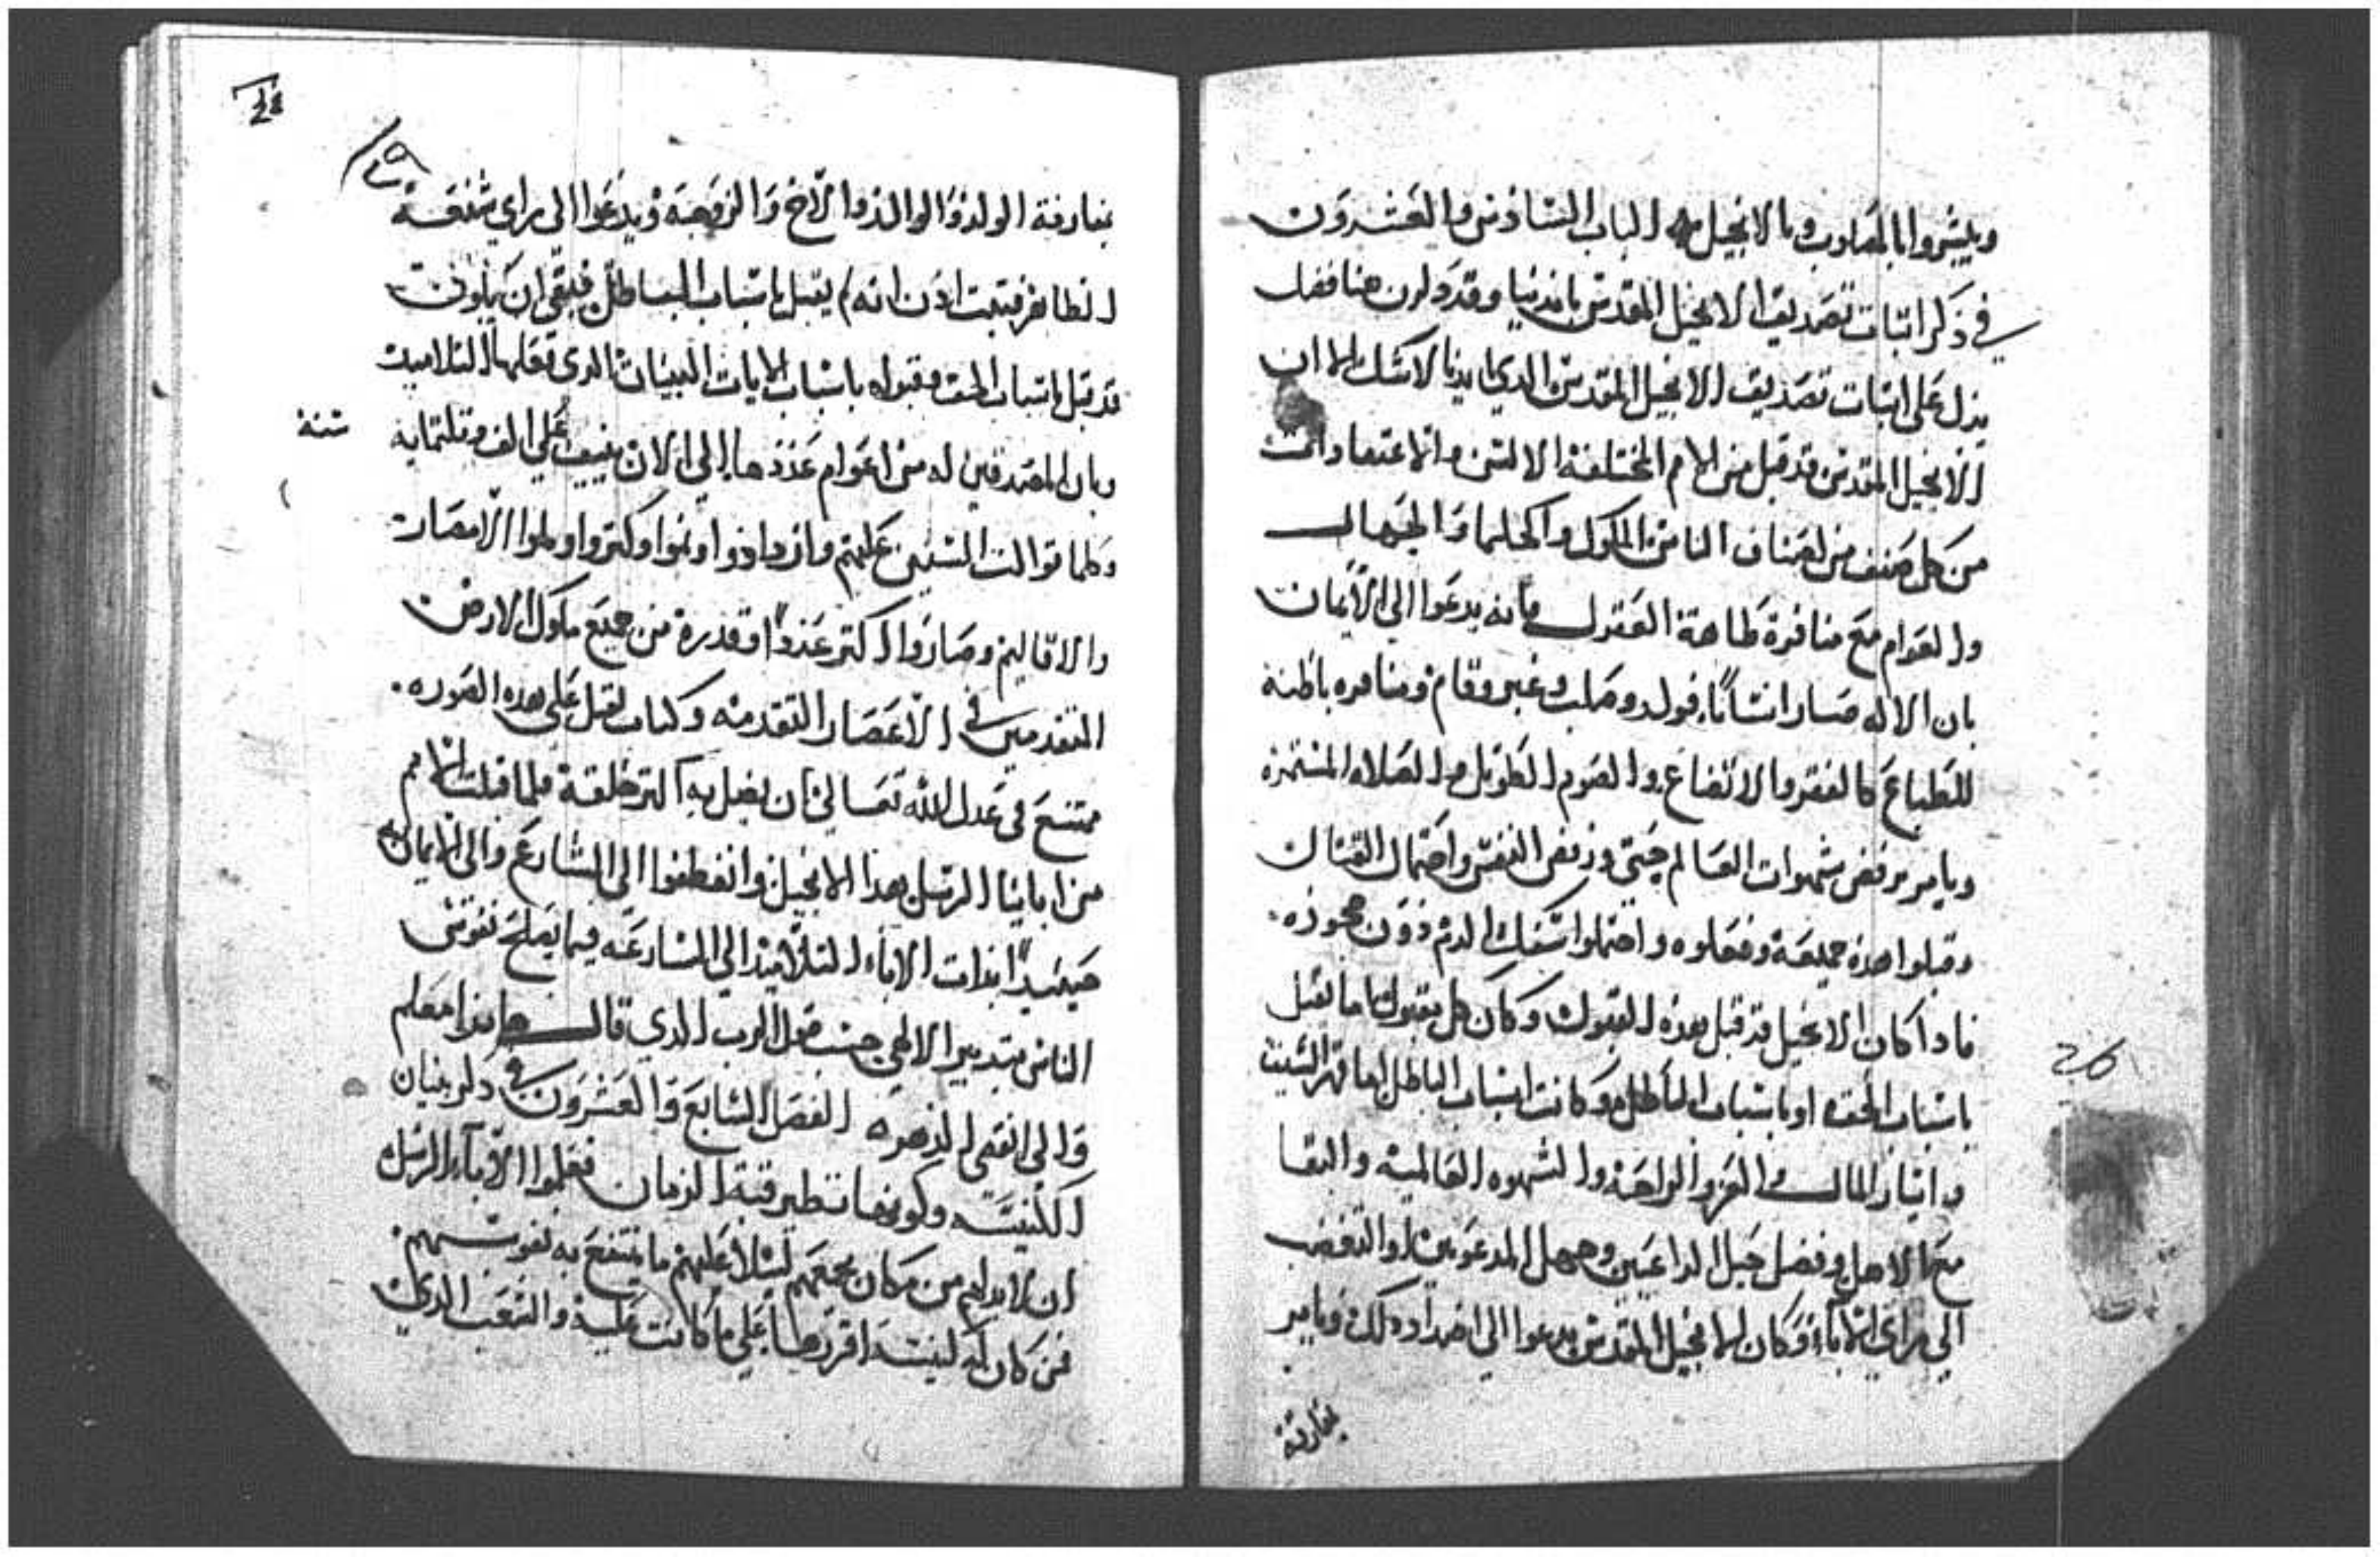 ويبشروا بالمصلوب وبالانجيل الباب السادس والعشرون
في ذكر اثبات تصديق الانجيل المقدس بايدينا وقد ذكرن هنا فصل
يدل على اثبات تصديق الانجيل المقدس الدي بايدينا لاشك الا ان
الانجيل المقدس قد قبل من الامم المختلفة الالسن والاعتقادات
من كل صنف من اصناف الناس الملوك والحكما والجهال
والعوام مع منافرة ظاهة العقول بانه يدعوا الي الايمان
بان الاله صار انساناً فولد وصلب وغبر وقام ومنافره باطنه
للطباع كالفقر والاتضاع والصوم الطويل والصلاه المستمره
ويامر برفض شهوات العالم حتي ورفض النفس واحتمال القتال
وقبلوا هذه جميعه وفعلوه واحتملوا سفك الدم دون جحوده
فادا كان الانجيل قد قبل بهذه القبول وكان كل مقبول اما يقبل
باسباب الحق او باسباب الباطل وكانت اسباب الباطل اما قهر السيف
وايثار المال والعز والراحة والشهوه العالميه والبقا
مع الاهل وفضل حيل الداعيين وجهل المدعوين او التعصب
الي راي الاباء وكان الانجيل المقدس يدعوا الي اضداد ذلك ويامر
بفارقة
26
بفارقة الولد والوالد والاخ والزوجه ويدعوا الى راي
فتبت ادن انه لم يقبل باسباب الباطل فبقي ان يكون
قد قبل باسباب الحق وقبوله باسباب الايات البينات الدي فعلها التلاميد
وبان المصدقين له من اعوام عددها الي الان ينيف علي الف وتلتمايه
سنة
وكلما توالت السنين عليهم وازدادوا ونموا وكتروا وملوا الامصار
والاقاليم وصاروا اكتر عددا وقدرة من جميع ملوك الارض
المتقدمين في الاعصار المتقدمه وكتاب يقبل على هده الصوره
ممتنع في عدل الله تعالي ان يضل به اكتر خلقه فلما قبلت الامم
من ابائنا الرسل بهدا الانجيل وانعطفوا الي الشارع والى الايمان به
حينيدٍ ابدات الاباء التلاميد الي المسارعه فيما يصلح نفوس
الناس بتدبير الالهي حسب قول الرب الدي قال هانذا معكم
والى انقضي الدهر الفصل السابع والعشرون في ذكر بنيان
الكنيسه وكونها تنظير قبة الزمان فعلموا الاباء الرسل
ان لابد لهم من مكان يجمعهم ليتلا عليهم ما تنتفع به نفوسهم
فمن كان له كنيسه اقرزها علي ما كانت عليه والشعب الدي